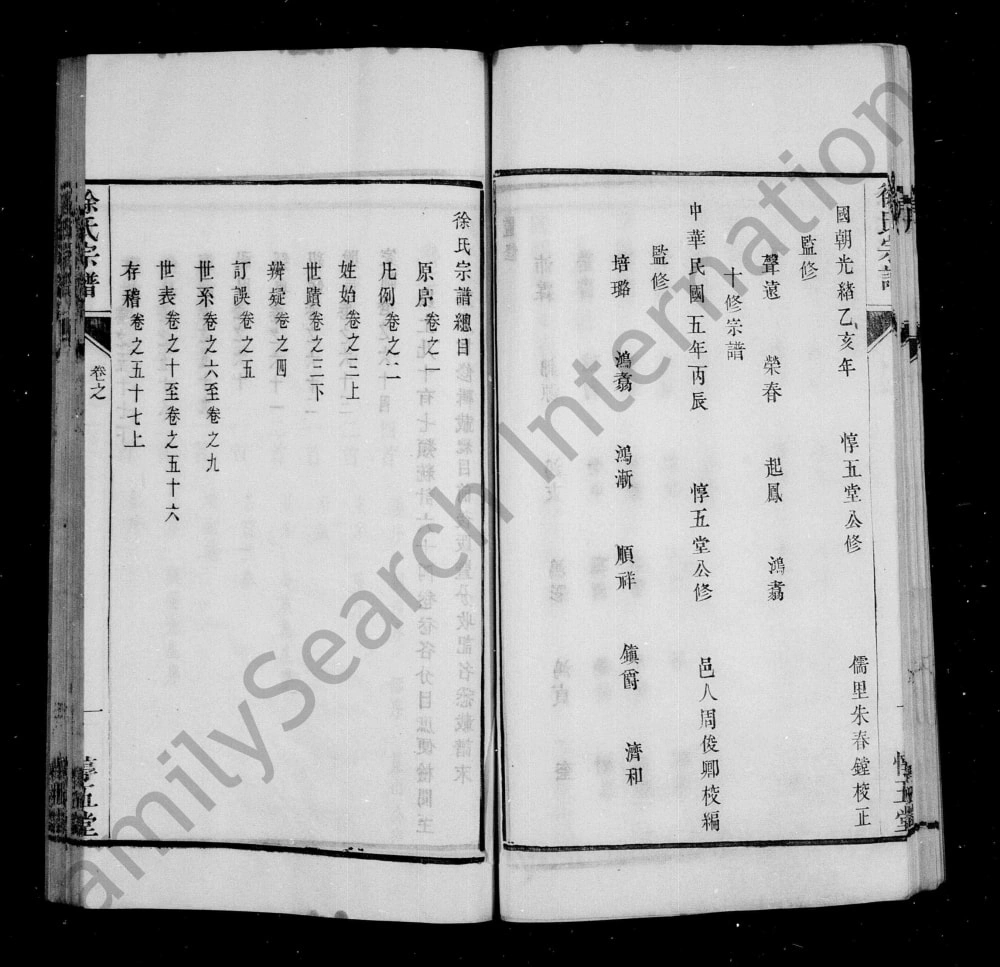 國朝光緒乙亥年 惇五堂公修 儒里朱春鏜校正
監修
聲遠 榮春 起鳳 鴻翥
十修宗譜
中華民國五年丙辰 惇五堂公修 邑人周俊卿校編
監修
培璐 鴻翥 鴻漸 順祥 鎮爵 濟和
徐氏宗譜
惇五堂
徐氏宗譜總目
原序卷之一
凡例卷之二
姓始卷之三上
世蹟卷之三下
辨疑卷之四
訂誤卷之五
世系卷之六至卷之九
世表卷之十至卷之五十六
存稽卷之五十七上
徐氏宗譜
卷之
一
惇五堂
FamilySearch International